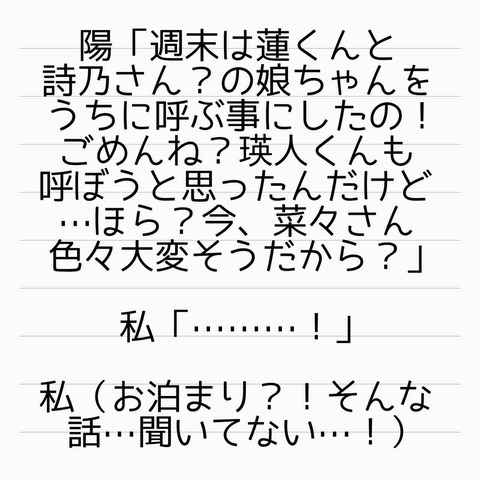 陽「週末は蓮くんと
詩乃さん？の娘ちゃんを
うちに呼ぶ事にしたの！
ごめんね？瑛人くんも
呼ぼうと思ったんだけど
…ほら？今、菜々さん
色々大変そうだから？」
私「………！」
私（お泊まり？！そんな
話…聞いてない…！）